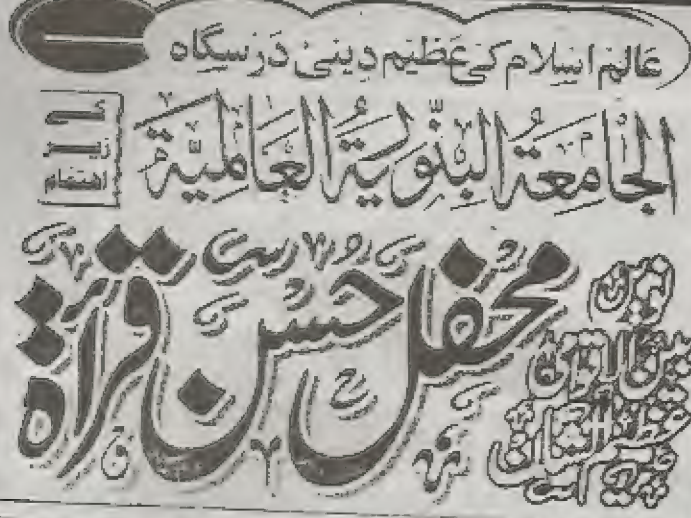 عالم اسلام کی عظیم دینی درسگاہ
الجامعۃ البنوریۃ العالمیۃ
کے
زیر
اہتمام
بین الاقوامی
عظیم الشان
محفل حسن قراۃ